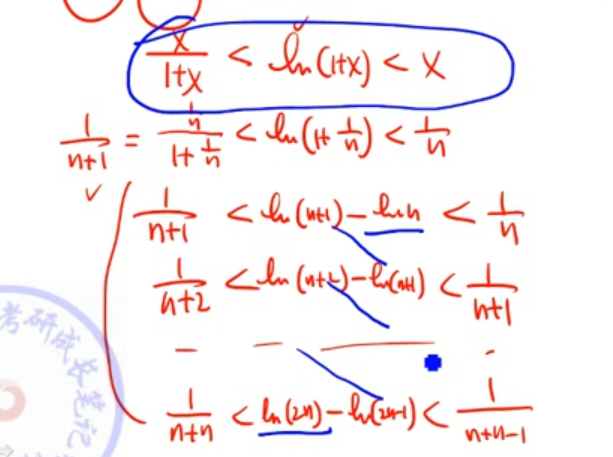 x/(1+x) < ln(1+x) < x
1/(n+1) = (1/n)/(1+1/n) < ln(1+1/n) < 1/n
1/(n+1) < ln(n+1) - ln n < 1/n
1/(n+2) < ln(n+2) - ln(n+1) < 1/(n+1)
1/(n+n) < ln(2n) - ln(2n-1) < 1/(n+n-1)
考研成长笔记